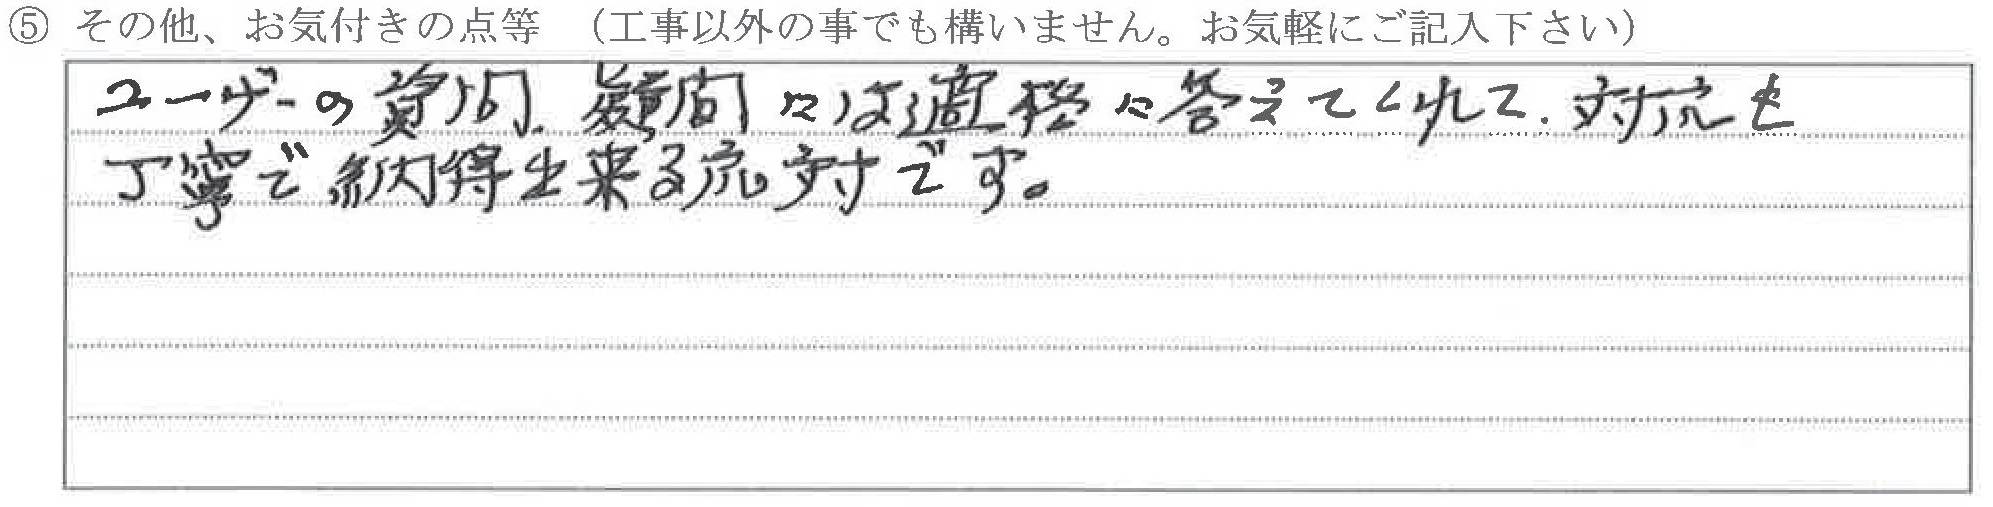 ⑤ その他、お気付きの点等 （工事以外の事でも構いません。お気軽にご記入下さい）
ユーザーの質問、疑問には適格に答えてくれて、対応も
丁寧で納得出来る応対です。